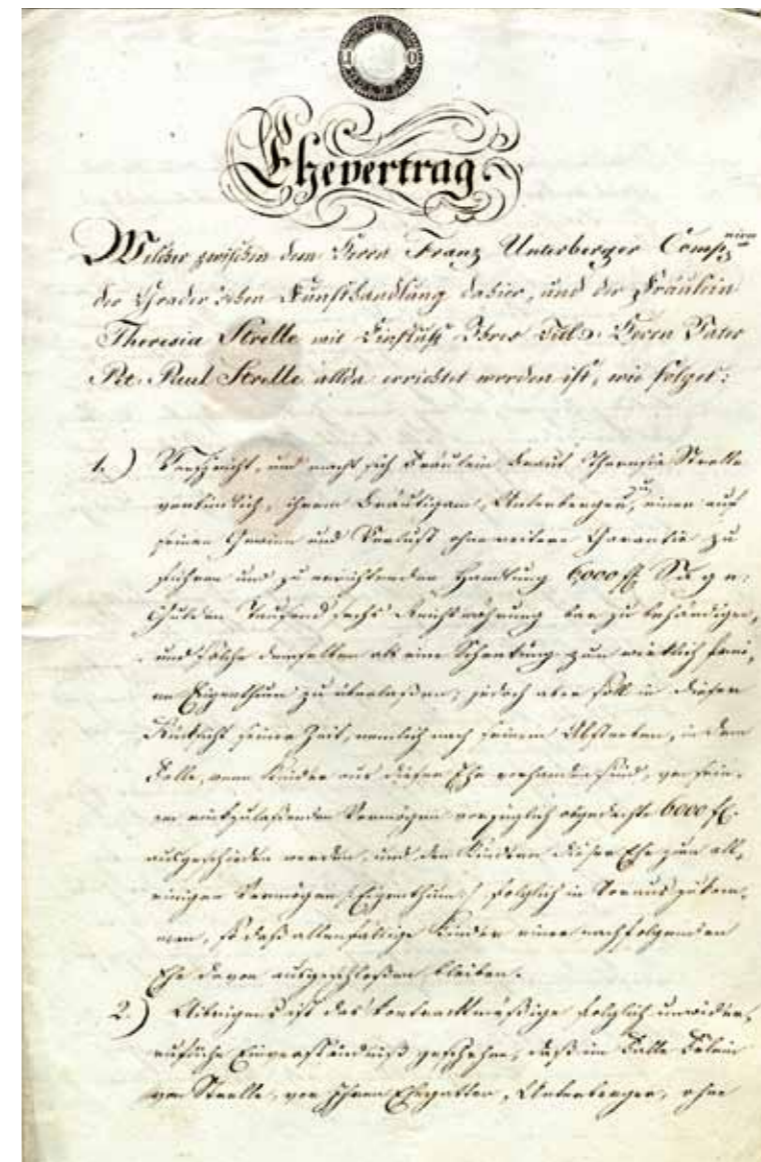 10
Ehevertrag.
Welcher zwischen dem Herrn Franz Unterberger Comp:nien
der Grader'schen Kunsthandlung dahier, und der Fräulein
Theresia Strelle mit Einfluß Ihres Titl: Herrn Vater
Pet. Paul Strelle allda errichtet worden ist, wie folget:
1.) Verspricht, und macht sich Fräulein Braut Theresia Strelle
verbindlich, ihrem Bräutigam, Unterberger, zu einer auf
seinen Gewinn und Verlust ohne weitere Garantie zu
führen und zu errichtenden Handlung 6000 f Sage:
Gulden Tausend sechs Reichswährung bar zu behändigen,
und solche demselben als eine Schenkung zum wirklich sei-
nen Eigenthum zu überlaßen; jedoch aber soll in dieser
Rücksicht seiner Zeit, nemlich nach seinem Absterben, in dem
Falle, wenn Kinder aus dieser Ehe vorhanden sind, von sein-
em rückzulaßenden Vermögen vorzüglich obgedachte 6000 f.
ausgeschieden werden, und den Kindern dieser Ehe zum all-
einigen Vermögen /:Eigenthum:/ folglich in Voraus zukom-
men, so daß allenfällige Kinder einer nachfolgenden
Ehe davon ausgeschloßen bleiben.
2.) Uibrigens ist das kontracktmäßige folglich unwider-
rufliche Einverständniß geschehen, daß im Falle
von Strelle, von Ihrem Ehegatten, Unterberger, ohne